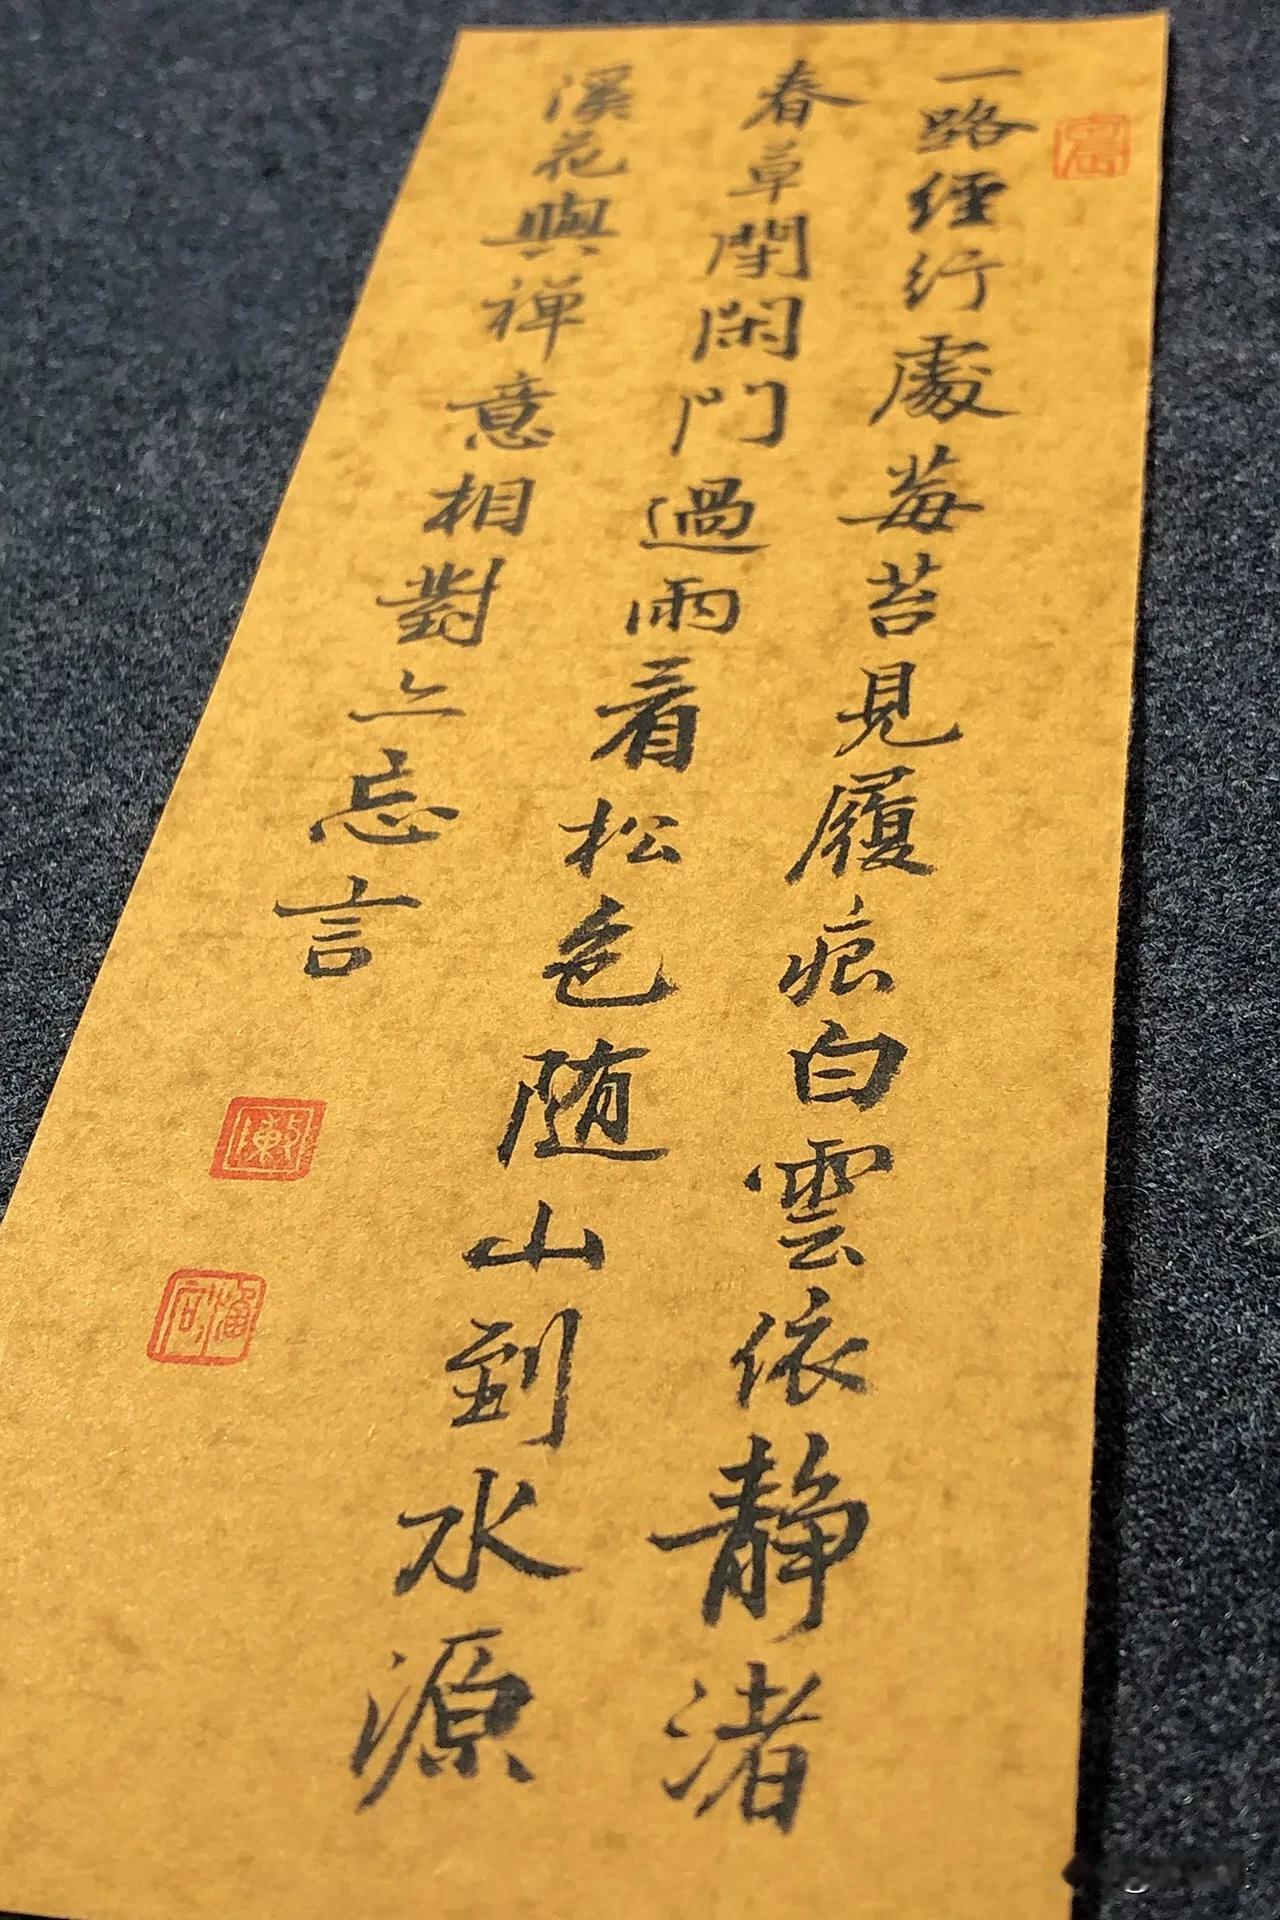 一路經行處莓苔見履痕白雲依静渚
春草閉閑門過雨看松色随山到水源
溪花與禅意相對亦忘言